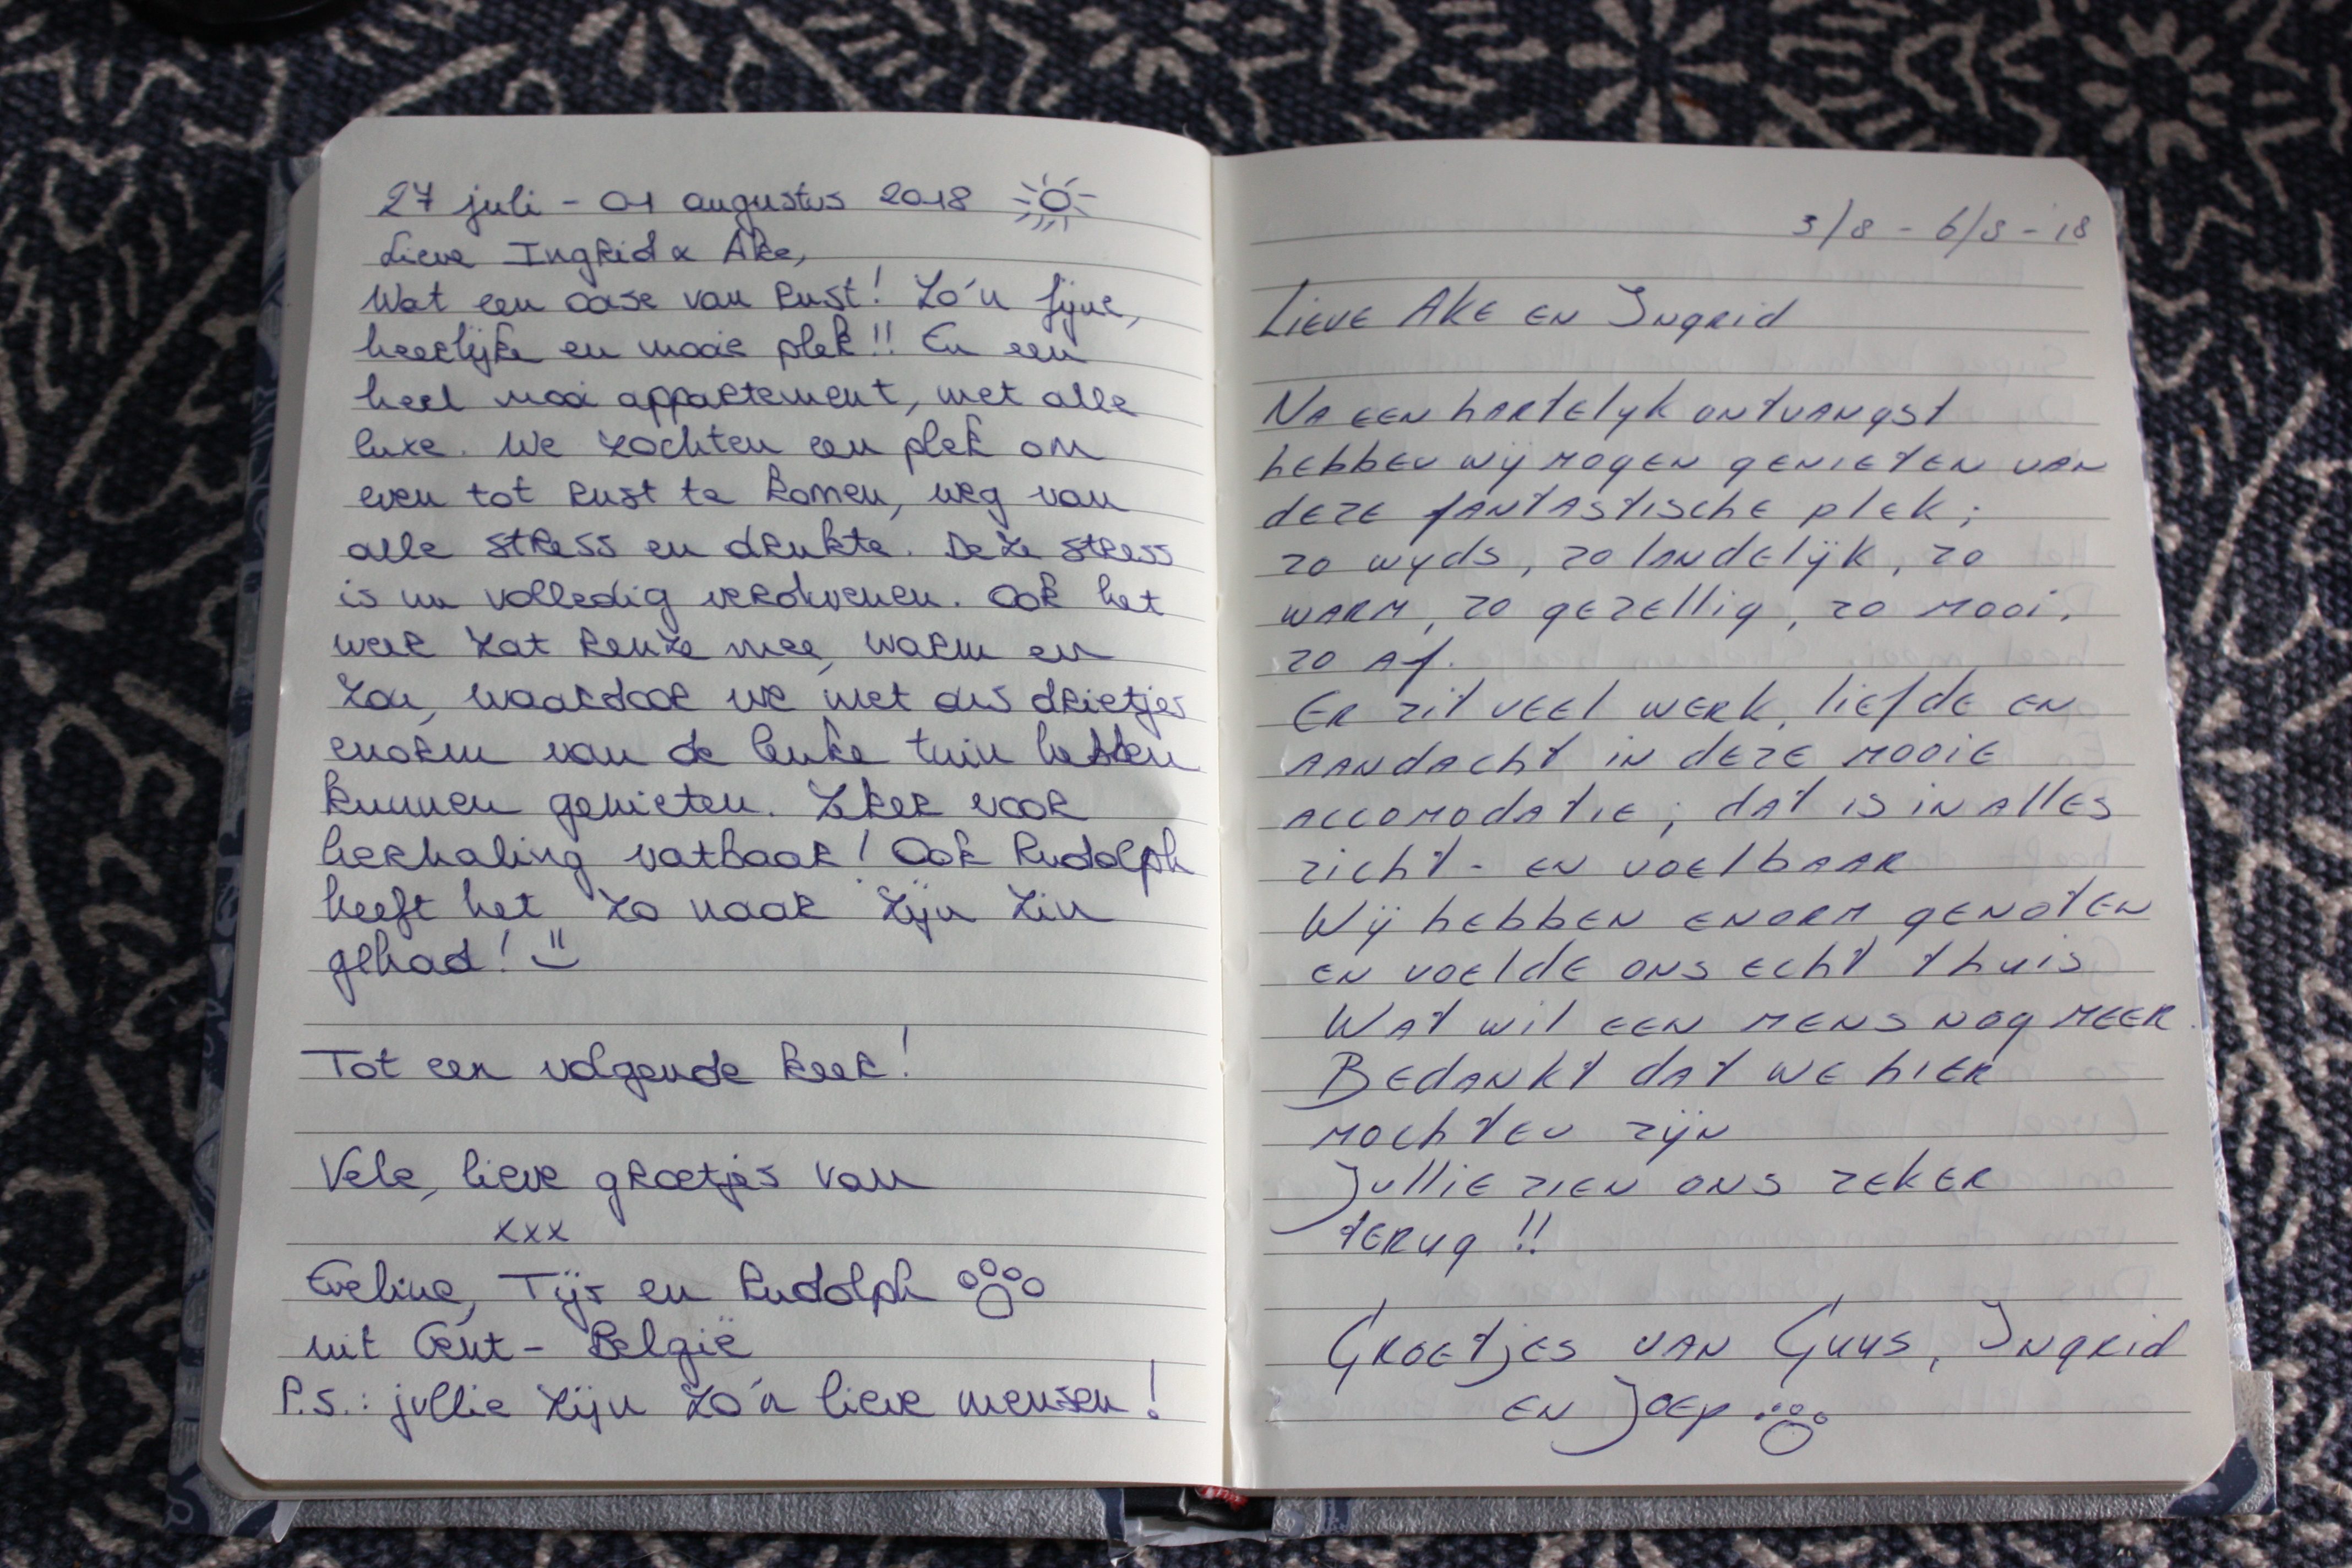 27 juli - 01 augustus 2018
Lieve Ingrid & Ake,
Wat een oase van rust! Zo'n fijne,
heerlijke en mooie plek!! En een
heel mooi appartement, met alle
luxe. We zochten een plek om
even tot rust te komen, weg van
alle stress en drukte. Deze stress
is nu volledig verdwenen. Ook het
weer zat reuze mee, warm en
zon, waardoor we met ons drietjes
enorm van de leuke tuin hebben
kunnen genieten. Zeker voor
herhaling vatbaar! Ook Rudolph
heeft het zo naar zijn zin
gehad!
Tot een volgende keer!
Vele, lieve groetjes van
xxx
Eveline, Tijs en Rudolph
uit Gent - België
P.S.: jullie zijn zo'n lieve mensen!
3/8 - 6/8 - '18
Lieve Ake en Ingrid
Na een hartelijk ontvangst
hebben wij mogen genieten van
deze fantastische plek;
zo wijds, zo landelijk, zo
warm, zo gezellig, zo mooi,
zo af.
Er zit veel werk, liefde en
aandacht in deze mooie
accomodatie; dat is in alles
zicht- en voelbaar
Wij hebben enorm genoten
en voelde ons echt thuis
Wat wil een mens nog meer.
Bedankt dat we hier
mochten zijn
Jullie zien ons zeker
terug!!
Groetjes van Guus, Ingrid
en Joep